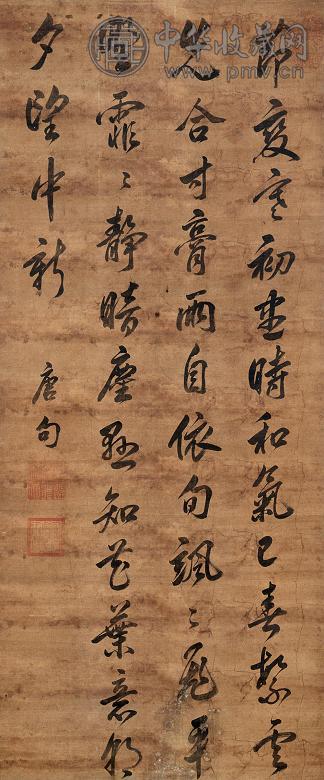 中华收藏网
www.pmv.cn
節變寒初盡時和氣已春繁雲
先合寸膏雨自依旬颯〻飛平
野霏〻靜暗塵懸知花葉意朝
夕望中新
唐句